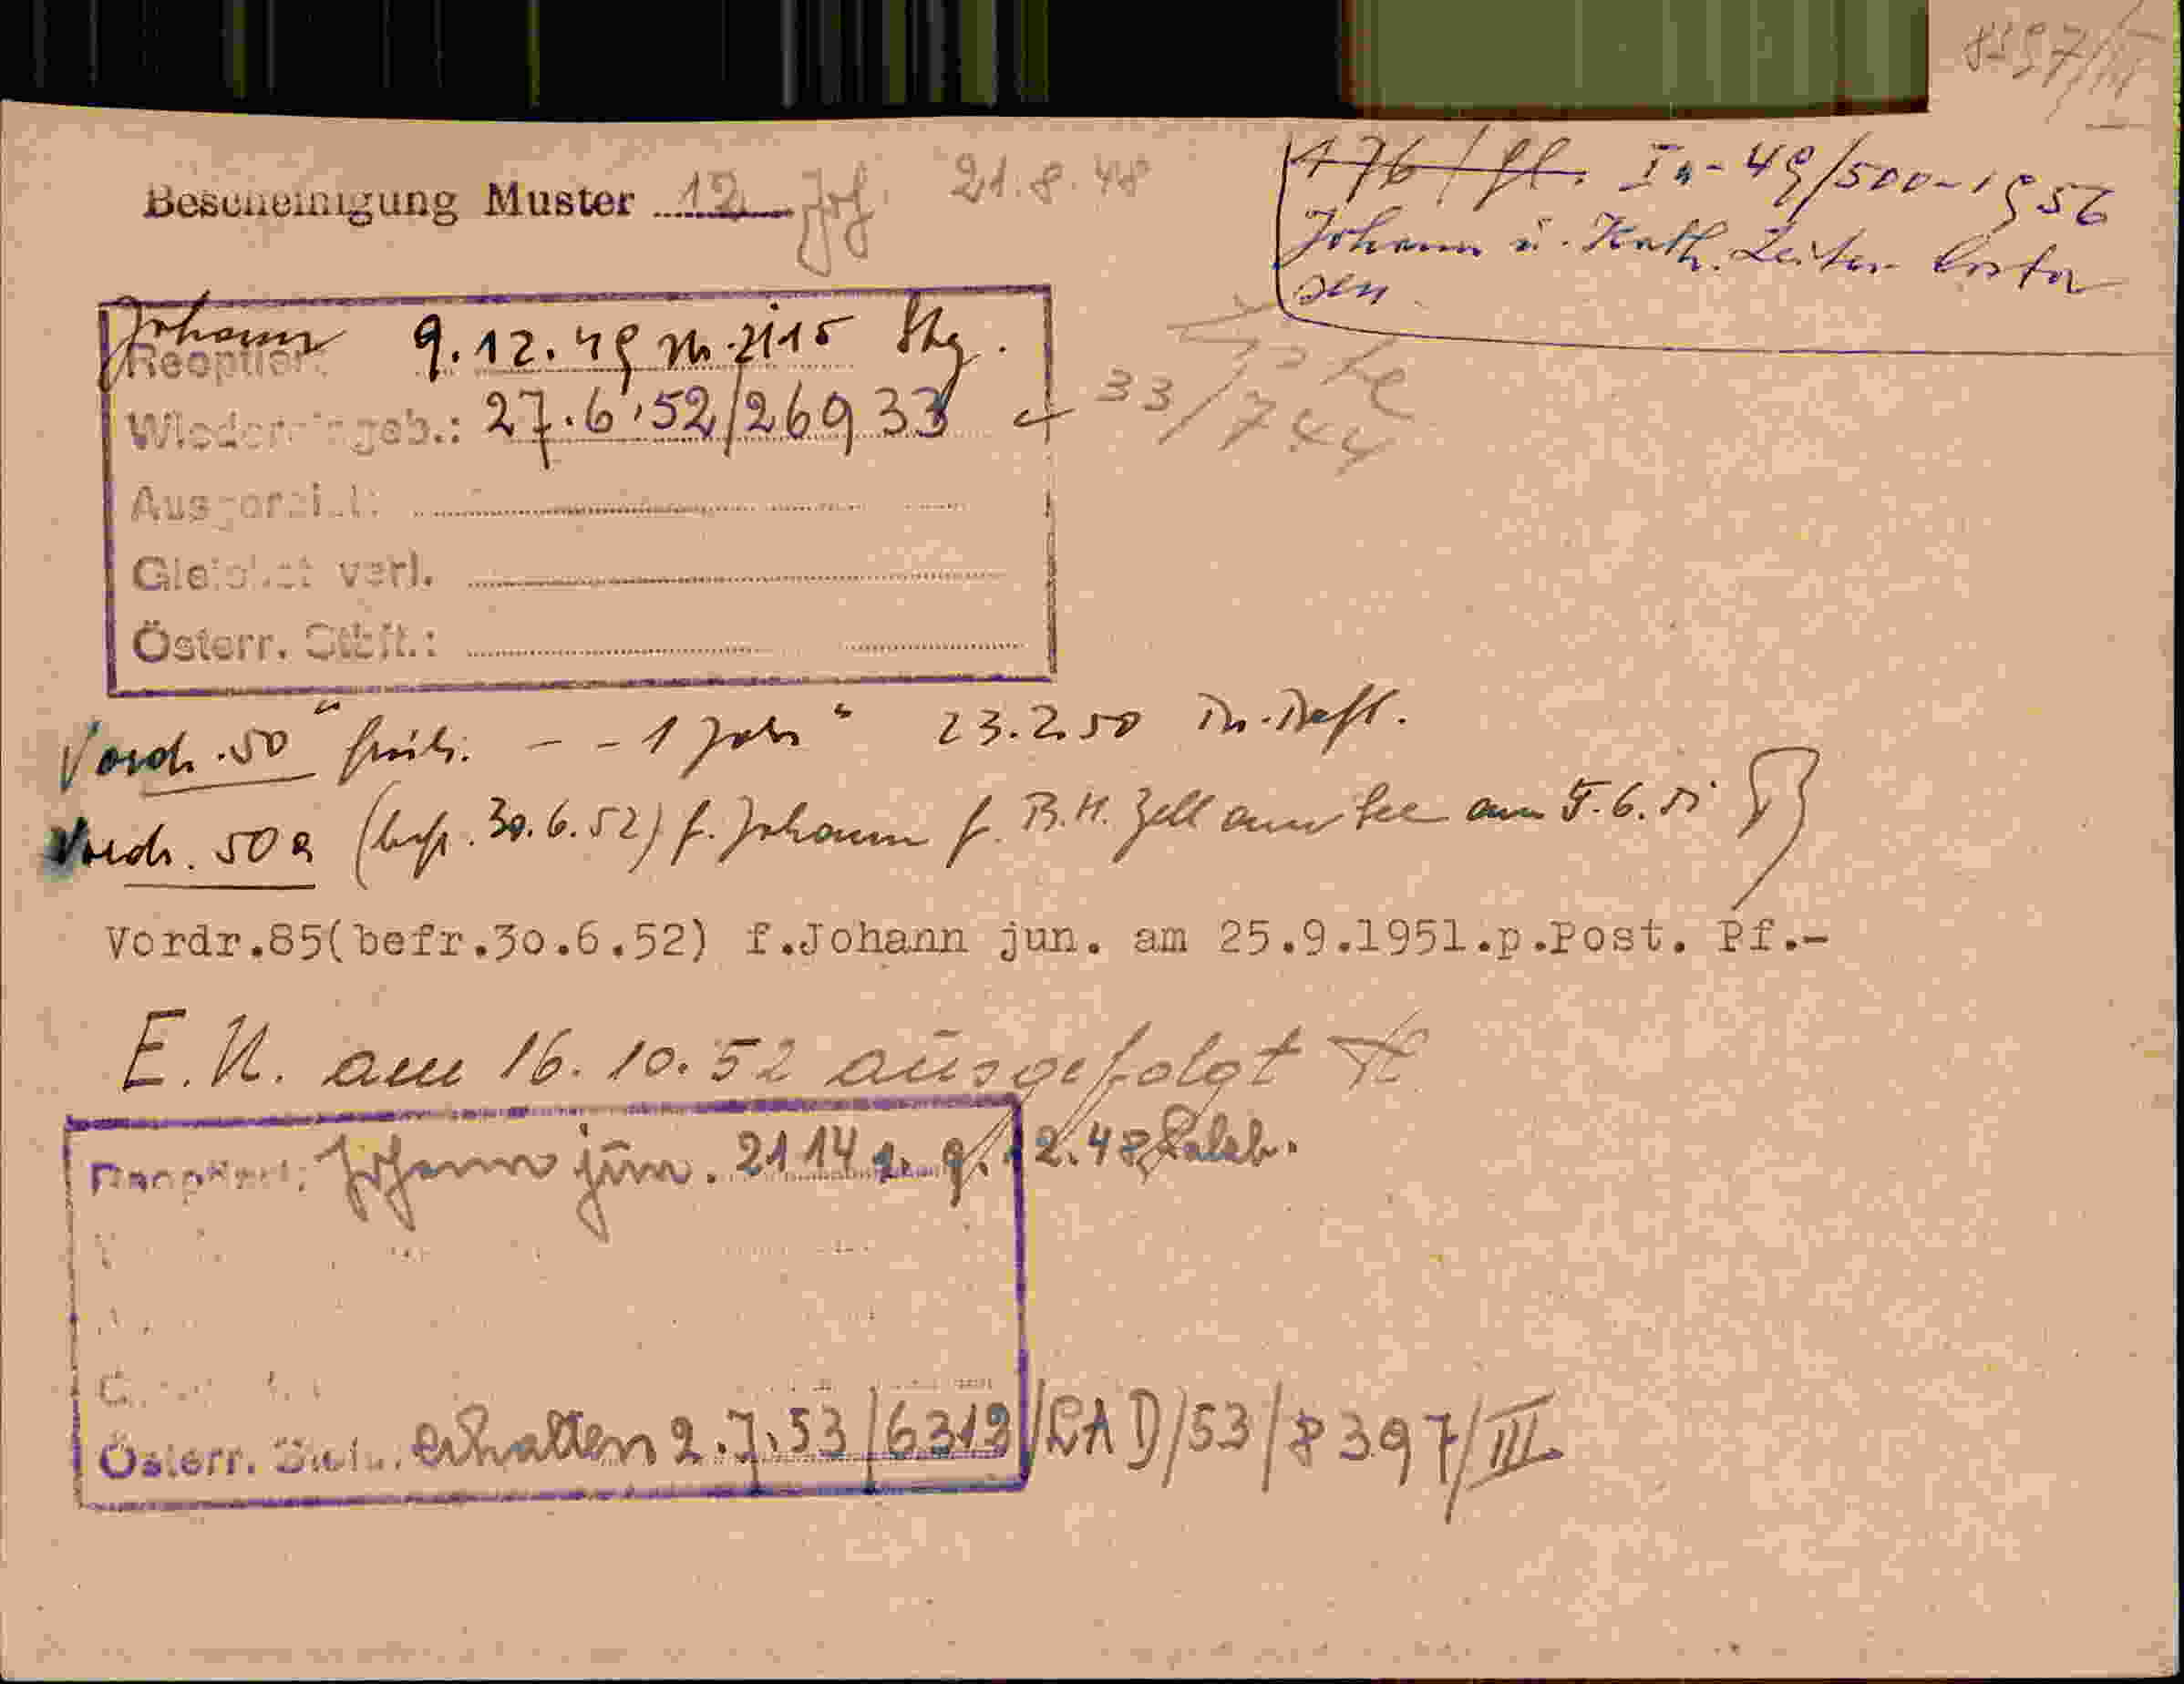 8397/III
Bescheinigung Muster 12 21.8.48
176/ff. Ia-49/500-1956
Johann u. Kath.
Johann
Reoptiert: 9.12.49 Nr. 2115 Sbg.
Wiedereingeb.: 27.6.52/26933
33/744
Ausgereist:
Gleichst verl.
Österr. Stbft.:
Vordr. 50 " - - 1 Jahr " 23.2.50
Vordr. 50a (befr. 30.6.52) f. Johann f. B.H. Zell am See am 5.6.51
Vordr.85(befr.30.6.52) f.Johann jun. am 25.9.1951.p.Post. Pf.-
E.U. am 16.10.52 ausgefolgt
Reoptiert: Johann jun. 2114 9.12.48 Salzb.
Österr. erhalten 2.7.53/6319/LAD/53/8397/III